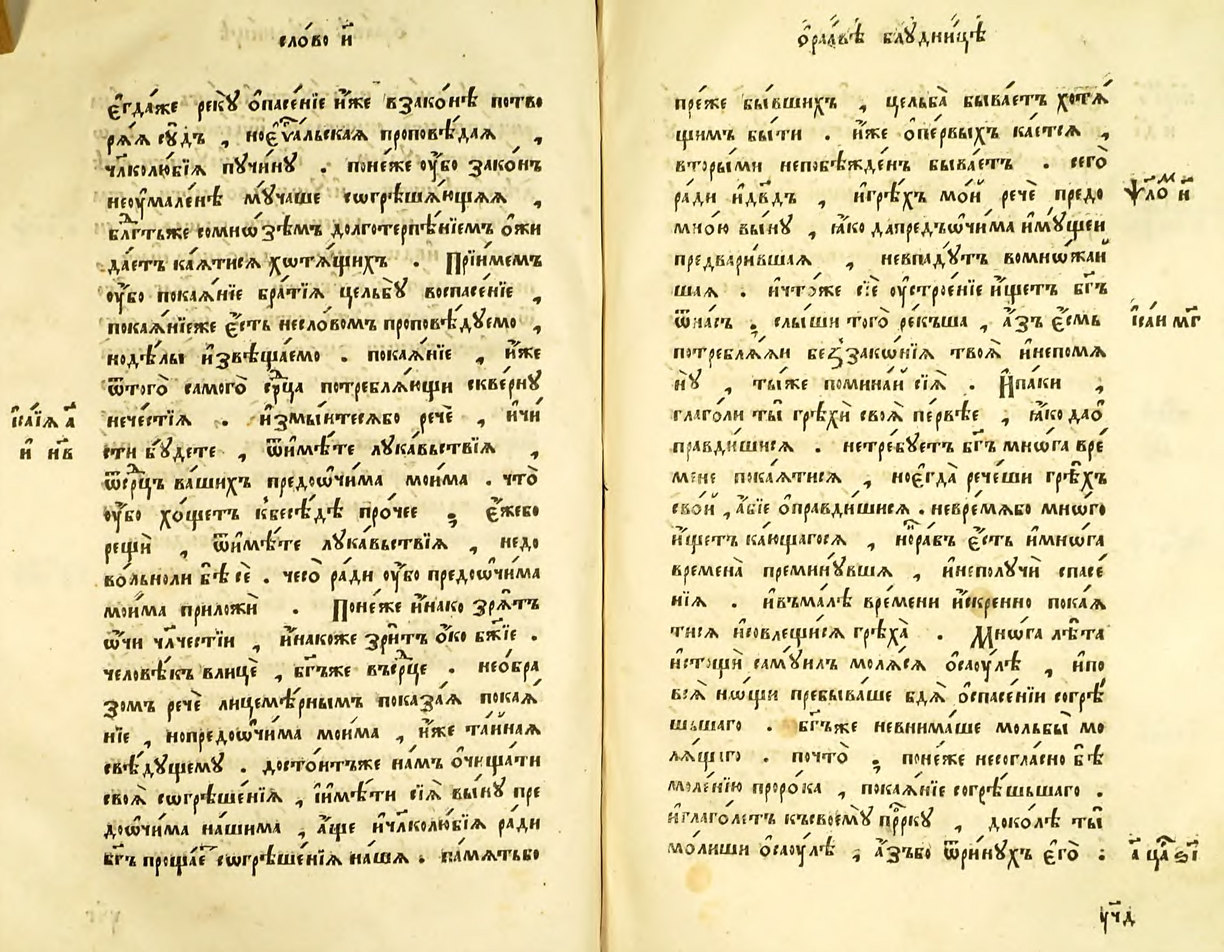 сло́во и҃
є҆гда́же рекꙋ̀ ѻ҆пасе́нїе и҆́же взако́нѣ потво
рѧ́ѧ сꙋ́дъ , ноеѵⷢ҇альскаѧ проповѣ́даѧ ,
чл҃колю́бїѧ пꙋчи́нꙋ . поне́же ᲂу҆̀бо зако́нъ
неᲂу҆мале́нѣ мꙋ́чаше сѡгрѣша́ющаѧ ,
блгⷣтьже сомнѡ́зѣмъ долготерпѣ́нїемъ ѻ҆жи
да́етъ ка́ѧтисѧ хѡтѧ́щихъ . Прїи́мемъ
ᲂу҆̀бо покаѧ́нїе бра́тїѧ цельбꙋ̀ воспасе́нїе ,
покаѧ́нїеже є҆́сть несло́вомъ проповѣ́дꙋемо ,
нодѣ́лы и҆звѣща́емо . покаѧ́нїе , и҆́же
ѿтого̀ самого̀ срⷣца потреблѧ́ющи скве́рнꙋ
нече́стїѧ . и҆змы́йтесѧбо речѐ , и҆чи́
сти бꙋ́дете , ѿимѣ́те лꙋка́вьствїѧ ,
ѿсрⷣцъ ва́шихъ предоѡ́чима мои́ма . что̀
ᲂу҆̀бо хо́щетъ кбесѣ́дѣ про́чее ; є҆́жебо
рещѝ , ѿимѣ́те лꙋка́вьствїѧ , недо
во́льноли бѣ̀ сѐ . чесо̀ ра́ди ᲂу҆̀бо предоѡ́чима
мои́ма приложѝ . Поне́же и҆́нако зрѧ́тъ
ѡ҆́чи чл҃че́стїи , и҆́накоже зри́тъ ѻ҆́ко бж҃їе .
человѣ́къ влицѐ , бг҃ъже въсрⷣце . необра
зомъ речѐ лицемѣ́рнымъ показа́ѧ покаѧ́
нїе , нопредоѡ́чима мои́ма , и҆́же та́йнаѧ
свѣ́дꙋщемꙋ . досто́итъже на́мъ ѻ҆чища́ти
своѧ̀ сѡгрѣше́нїѧ , и҆имѣ́ти сїѧ̀ вы́нꙋ пре
доѡ́чима на́шима , а҆́ще и҆чл҃колю́бїѧ ра́ди
бг҃ъ проща́еⷮ сѡгрѣше́нїѧ на́ша . па́мѧтьбо
и҆са́їѧ а҃
и҃ нв҃
ѻ҆раа́вѣ блꙋдни́цѣ
пре́же бы́вшихъ , цельба̀ быва́етъ хотѧ́
щимъ бы́ти . и҆́же ѻ҆пе́рвыхъ ка́етсѧ ,
вторы́ми непобѣжде́нъ быва́етъ . сего̀
ра́ди и҆дв҃дъ , и҆грѣ́хъ мо́й речѐ предо
мно́ю вы́нꙋ , ꙗ҆́ко дапредъѡ́чима и҆мꙋ́щей
предвари́вшаѧ , невпадꙋ́тъ вомнѡ́жай
шаѧ . и҆что́же сїѐ ᲂу҆строе́нїе и҆́щетъ бг҃ъ
ѿна́съ ; слы́ши того̀ ре́къша , а҆́зъ є҆́смь
потреблѧ́ѧй беззакѡ́нїѧ твоѧ̀ и҆непомѧ
нꙋ̀ , ты́же помина́й сїѧ̀ . И҆па́ки ,
глаго́ли ты̀ грѣхѝ своѧ̀ пе́рвѣе , ꙗ҆́ко даѻ҆
правди́шисѧ . нетре́бꙋетъ бг҃ъ мнѡ́га вре́
мене покаѧ́тисѧ , ноєгда̀ рече́ши грѣ́хъ
сво́й , а҆́бїе ѻ҆правди́шисѧ . невре́мѧбо мно́го
и҆́щетъ ка́ющагосѧ , но́равъ є҆́сть и҆мнѡ́га
времена̀ преминꙋ́вша , и҆неполꙋчѝ спасе́
нїѧ . и҆въма́лѣ вре́мени и҆́скренно покаѧ́
тисѧ и҆совлещи́сѧ грѣха̀ . Мнѡ́га лѣ́та
и҆стощѝ самꙋ́илъ молѧ́сѧ ѻ҆саᲂу́лѣ , и҆по
всѧ̀ нѡ́щи пребыва́ше бдѧ̀ ѻ҆спасе́нїи согрѣ́
шьшаго . бг҃ъже невнима́ше мольбы̀ мо
лѧ́щаго . почто̀ ; поне́же несогла́сно бѣ̀
моле́нїю проро́ка , покаѧ́нїе согрѣ́шьшаго .
и҆глаго́летъ къ своемꙋ̀ прⷪ҇ркꙋ , доко́лѣ ты̀
мо́лиши ѻ҆саᲂу́лѣ , а҆́зъбо ѿри́нꙋхъ є҆го̀ :
ѱаⷧ҇о́мⷤ н҃
и҆са́и мг҃
а҃ црⷭ҇ ѕ҃і
ᲂу҆чд